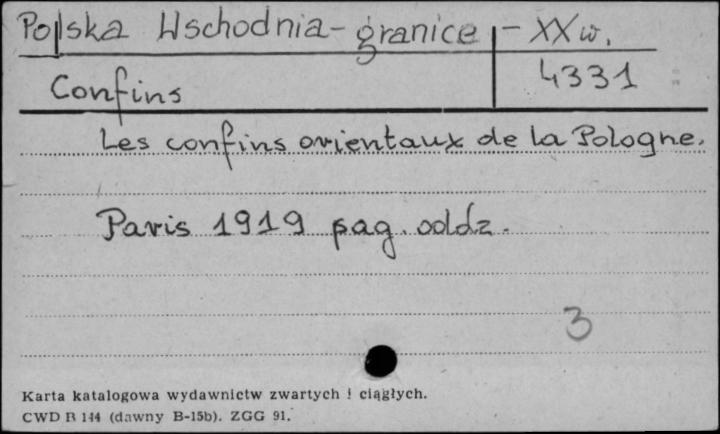 Polska Wschodnia - granice - XX w.
Confins 4331
Les confins orientaux de la Pologne.
Paris 1919 pag. oddz.
3
Karta katalogowa wydawnictw zwartych i ciągłych.
CWD B 144 (dawny B-15b). ZGG 91.